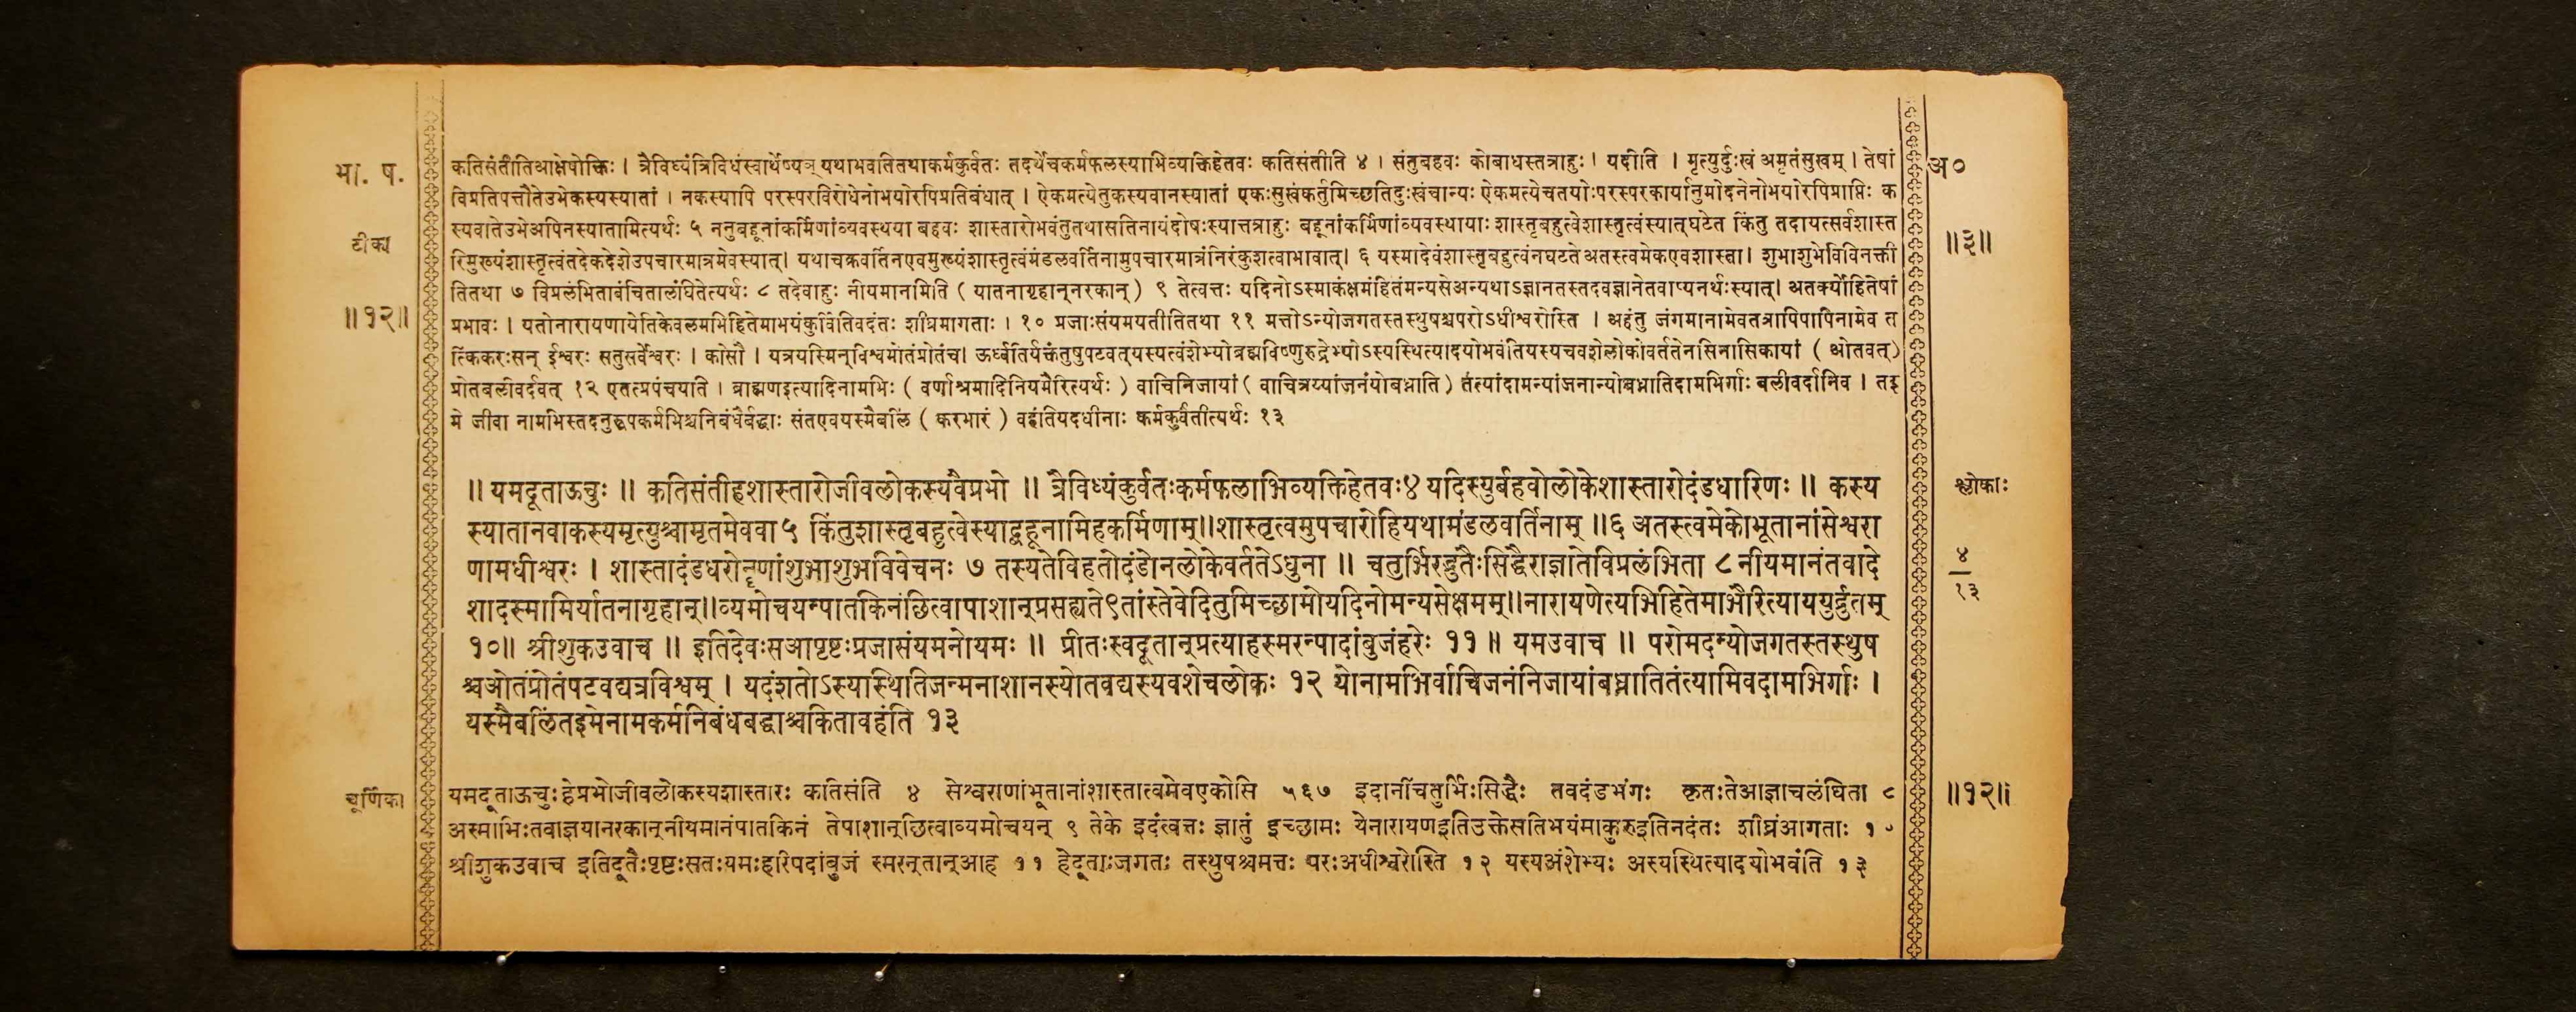 भा. ष.
टीका
॥१२॥
कतिसंतीतिआक्षेपोक्तिः । त्रैविध्यंत्रिविधंस्वार्थेष्यञ् यथाभवतितथाकर्मकुर्वतः तदर्थेचकर्मफलस्याभिव्यक्तिहेतवः कतिसंतीति ४ । संतुबहवः कोबाधस्तत्राहुः । यदीति । मृत्युर्दुःखं अमृतंसुखम् । तेषां
विप्रतिपत्तौतेउभेकस्यस्यातां । नकस्यापि परस्परविरोधेनोभयोरपिप्रतिबंधात् । ऐकमत्येतुकस्यवानस्यातां एकःसुखंकर्तुमिच्छतिदुःखंचान्यः ऐकमत्येचतयोःपरस्परकार्यानुमोदनेनोभयोरपिप्राप्तिः क
स्यवातेउभेअपिनस्यातामित्यर्थः ५ ननुबहूनांकर्मिणांव्यवस्थया बहवः शास्तारोभवंतुतथासतिनायंदोषःस्यात्तत्राहुः बहूनांकर्मिणांव्यवस्थायाः शास्तृबहुत्वेशास्तृत्वंस्यात्‌घटेत किंतु तदायत्सर्वशास्त
रिमुख्यंशास्तृत्वंतदेकदेशेउपचारमात्रमेवस्यात्। यथाचक्रवर्तिनएवमुख्यंशास्तृत्वंमंडलवर्तिनामुपचारमात्रंनिरंकुशत्वाभावात्। ६ यस्मादेवंशास्तृबहुत्वंनघटते अतस्त्वमेकएवशास्ता। शुभाशुभेविविनक्ती
तितथा ७ विप्रलंभितावंचितालंघितेत्यर्थः ८ तदेवाहुः नीयमानमिति ( यातनागृहान्‌नरकान् ) ९ तेत्वत्तः यदिनोऽस्माकंक्षमंहितंमन्यसेअन्यथाऽज्ञानतस्तदवज्ञानेतवाप्यनर्थःस्यात्। अतर्क्योहितेषां
प्रभावः । यतोनारायणायेतिकेवलमभिहितेमाभयंकुर्वितिवदंतः शीघ्रमागताः । १० प्रजाःसंयमयतीतितथा ११ मत्तोऽन्योजगतस्तस्थुषश्चपरोऽधीश्वरोस्ति । अहंतु जंगमानामेवतत्रापिपापिनामेव त
त्किंकरःसन् ईश्वरः सतुसर्वेश्वरः । कोसौ । यत्रयस्मिन्‌विश्वमोतंप्रोतंच। ऊर्ध्वतिर्यक्तंतुषुपटवत्‌यस्यत्वंशेभ्योब्रह्मविष्णुरुद्रेभ्योऽस्यस्थित्यादयोभवंतियस्यचवशेलोकोवर्ततेनसिनासिकायां ( ओतवत्)
प्रोतबलीवर्दवत् १२ एतत्प्रपंचयति । ब्राह्मणइत्यादिनामभिः ( वर्णाश्रमादिनियमैरित्यर्थः ) वाचिनिजायां ( वाचित्रय्यांजनंयोबध्नाति ) तंत्यांदामन्यांजनान्योबध्नातिदामभिर्गाः बलीवर्दानिव । तइ
मे जीवा नामभिस्तदनुरूपकर्मभिश्चनिबंधैर्बद्धाः संतएवयस्मैबलिं ( करभारं ) वहंतियदधीनाः कर्मकुर्वंतीत्यर्थः १३
अ०
॥३॥
॥ यमदूताऊचुः ॥ कतिसंतीहशास्तारोजीवलोकस्यवैप्रभो ॥ त्रैविध्यंकुर्वतःकर्मफलाभिव्यक्तिहेतवः४ यदिस्युर्बहवोलोकेशास्तारोदंडधारिणः ॥ कस्य
स्यातानवाकस्यमृत्युश्चामृतमेववा५ किंतुशास्तृबहुत्वेस्याद्बहूनामिहकर्मिणाम्॥शास्तृत्वमुपचारोहियथामंडलवर्तिनाम् ॥६ अतस्त्वमेकोभूतानांसेश्वरा
णामधीश्वरः । शास्तादंडधरोनॄणांशुभाशुभविवेचनः ७ तस्यतेविहतोदंडोनलोकेवर्ततेऽधुना ॥ चतुर्भिरद्भुतैःसिद्धैराज्ञातेविप्रलंभिता ८ नीयमानंतवादे
शादस्माभिर्यातनागृहान्॥व्यमोचयन्पातकिनंछित्वापाशान्प्रसह्यते९तांस्तेवेदितुमिच्छामोयदिनोमन्यसेक्षमम्॥नारायणेत्यभिहितेमाभैरित्याययुर्द्रुतम्
१०॥ श्रीशुकउवाच ॥ इतिदेवःसआपृष्टःप्रजासंयमनोयमः ॥ प्रीतःस्वदूतान्प्रत्याहस्मरन्पादांबुजंहरेः ११ ॥ यमउवाच ॥ परोमदन्योजगतस्तस्थुष
श्चओतंप्रोतंपटवद्यत्रविश्वम् । यदंशतोऽस्यास्थितिजन्मनाशानस्योतवद्यस्यवशेचलोकः १२ योनामभिर्वाचिजनंनिजायांबध्नातितंत्यामिवदामभिर्गाः ।
यस्मैबलिंतइमेनामकर्मनिबंधबद्धाश्चकितावहंति १३
श्लोकाः
४
१३
चूर्णिका
यमदूताऊचुःहेप्रभोजीवलोकस्यशास्तारः कतिसंति ४ सेश्वराणांभूतानांशास्तात्वमेवएकोसि ५६७ इदानींचतुर्भिःसिद्धैः तवदंडभंगः कृतःतेआज्ञाचलंघिता ८
अस्माभिःतवाज्ञयानरकान्‌नीयमानंपातकिनं तेपाशान्‌छित्वाव्यमोचयन् ९ तेके इदंत्वत्तः ज्ञातुं इच्छामः येनारायणइतिउक्तेसतिभयंमाकुरुइतिनदंतः शीघ्रंआगताः १०
श्रीशुकउवाच इतिदूतैःपृष्टःसतःयमःहरिपदांबुजं स्मरन्‌तान्‌आह ११ हेदूताःजगतः तस्थुषश्चमत्तः परःअधीश्वरोस्ति १२ यस्यअंशेभ्यः अस्यस्थित्यादयोभवंति १३
॥१२॥